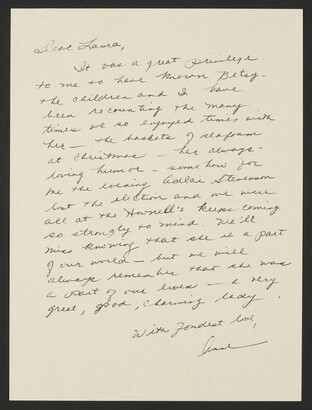 Dear Laura,
It was a great privilege
to me to have known Betsy.
The children and I have
been recounting the many
times we so enjoyed times with
her — the baskets of seafoam
at Christmas — her always-
loving humor — somehow for
me the evening Adlai Stevenson
lost the election and we were
all at the Howell's keeps coming
so strongly to mind. We'll
miss knowing that she is a part
of our world — but we will
always remember that she was
a part of our lives — a very
great, good, charming lady.
With fondest love,